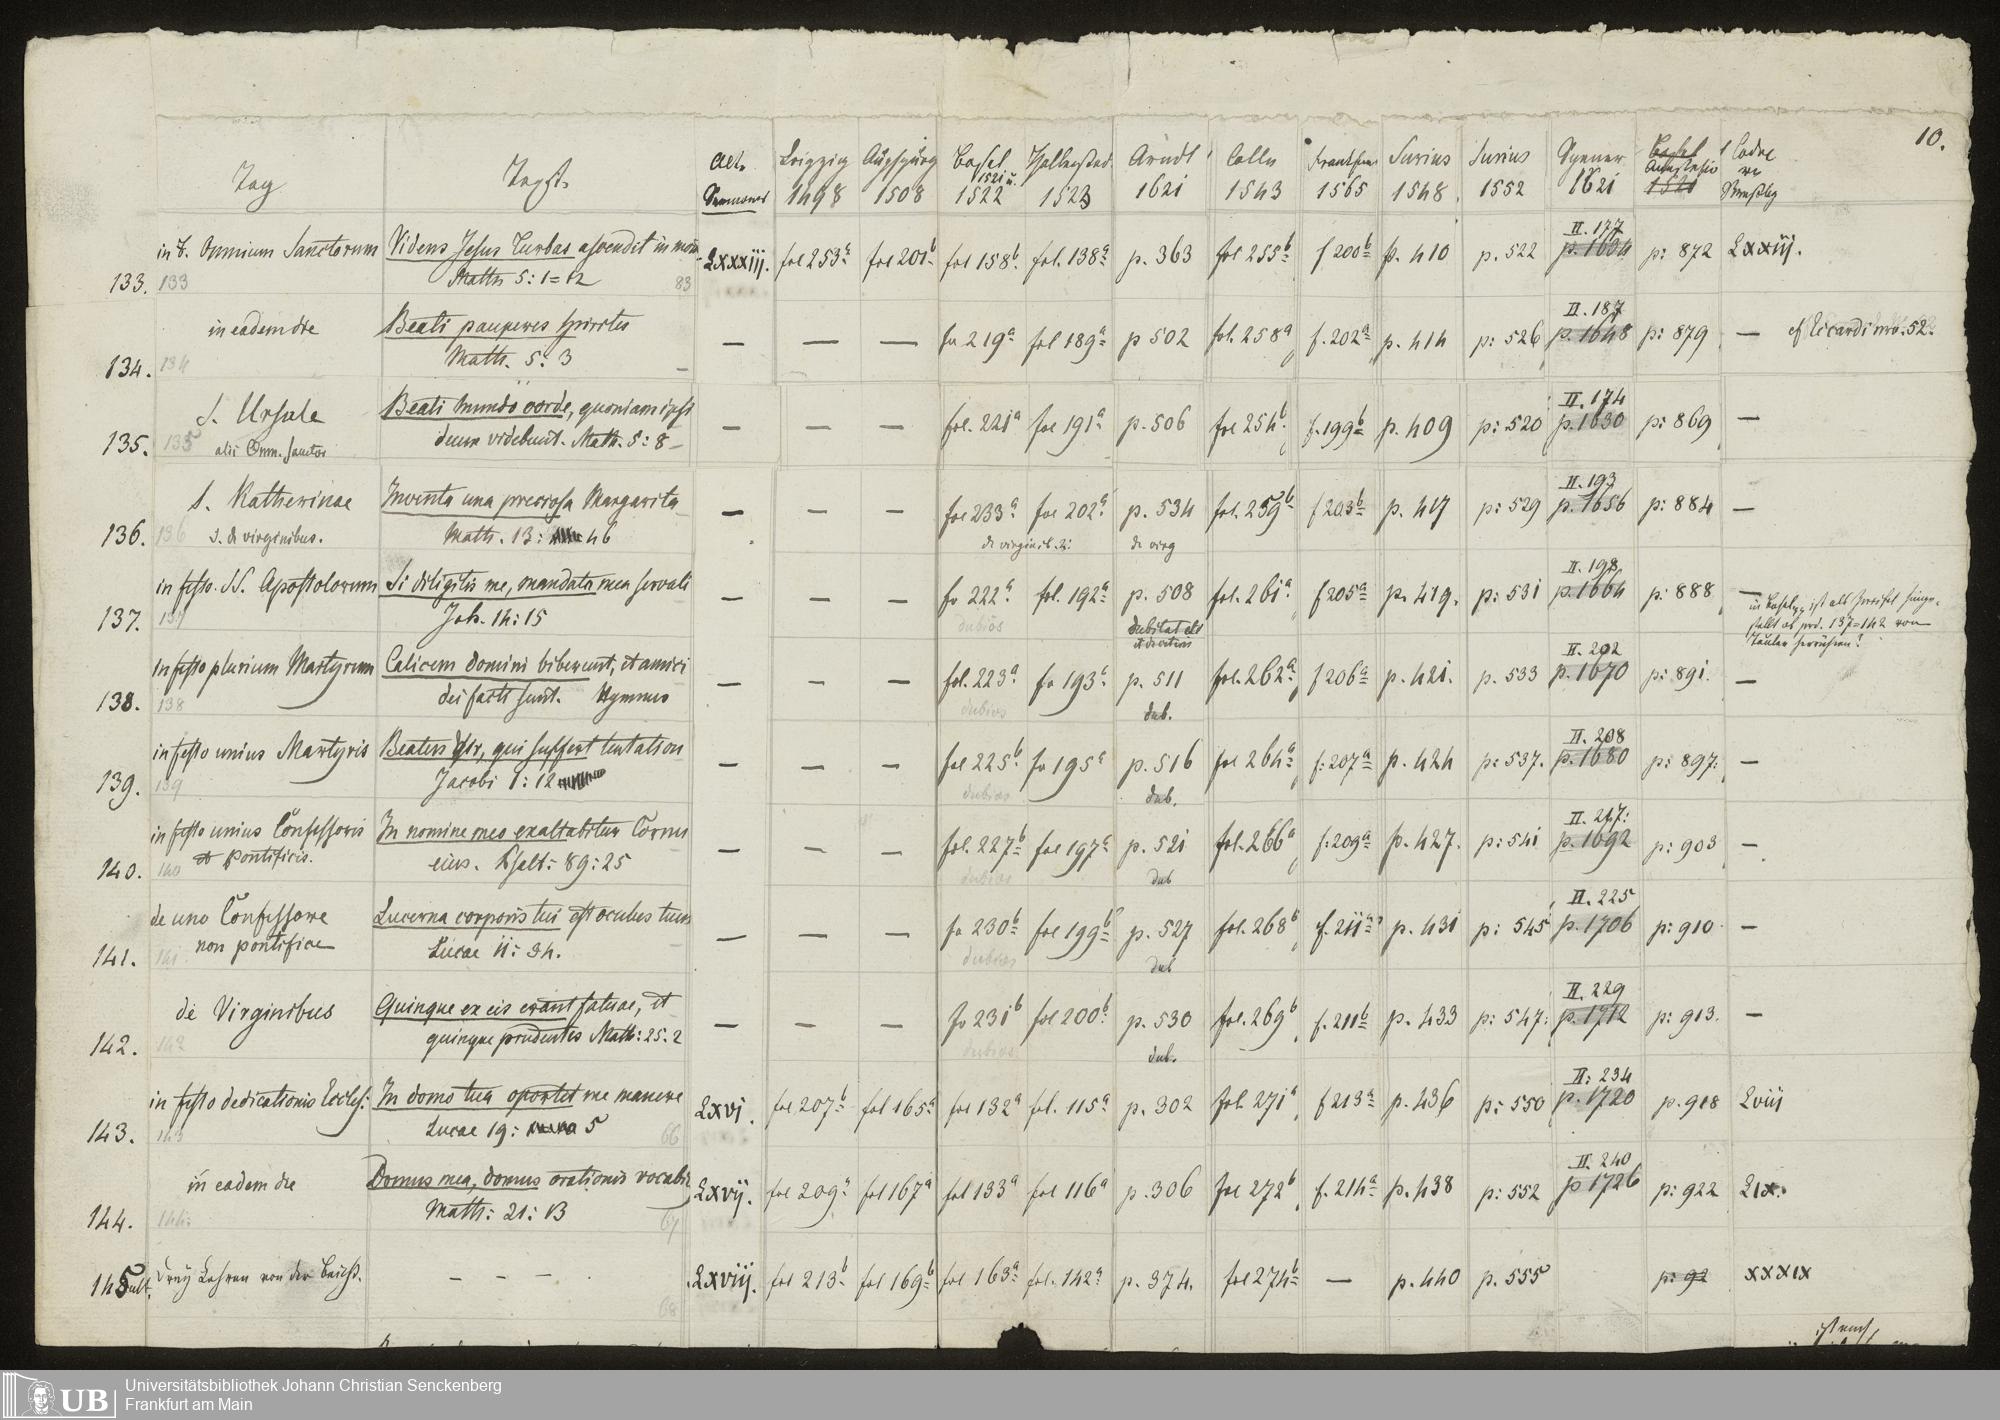 10.
Tag Text. Alte Leipzig Augspurg Basel Halberstad. Arndt Cölln Frankfurt Surius Surius Spener Basel Codex
Sermones 1498 1508 1521 u. 1522 1523 1621 1543 1565 1548. 1552 1621 1521
in f. Omnium Sanctorum Videns Jesus turbas ascendit in mon-
133. 133 Matth 5: 1=12 83 LXXXiij. fol 253a fol 201b fol 158b. fol. 138a p. 363 fol 255b f 200b p. 410 p. 522 II. 177 p. 1634 p: 872 LXXiij.
in eadem die Beati pauperes spiritu
134. 134 Matth. 5: 3 — — — — fo 219a fol 189a p 502 fol. 258a f. 202a p. 414 p: 526 II. 187 p. 1648 p: 879 — cf Ricardi nro. 52.
S. Ursule Beati mundo corde, quoniam ipsi
135. 135 alii Omn. sanctor deum videbunt. Math. 5: 8 — — — — fol. 221a fol 191a p. 506 fol 254b f. 199b p. 409 p: 520 II. 174 p. 1630 p: 869 —
S. Katherinae Inventa una preciosa Margarita
136. 136 s. de virginibus. Math. 13: 46 — — — fol 233a fol 202a p. 534 fol. 259b f 203b p. 417 p: 529 II. 193 p. 1656 p: 884 —
de virginib. 2: de virg
in festo SS. Apostolorum Si diligitis me, mandata mea servate
137. 137 Joh. 14: 15 — — — fo 222a fol. 192a p. 508 fol. 261a f 205a p. 419. p: 531 II. 198 p. 1664 p: 888 —
dubios dubitat
in festo plurium Martyrum Calicem domini biberunt, et amici
138. 138 dei facti sunt. Hymnus — — — fol. 223a fo 193a p. 511 fol. 262a f 206a p. 421. p. 533 II. 202 p. 1670 p: 891. —
dubios dub.
in festo unius Martyris Beatus Vir, qui suffert tentation
139. 139 Jacobi 1: 12 — — — fol 225b fo 195a p. 516 fol 264a f: 207a p. 424 p: 537. II. 208 p. 1680 p: 897. —
dubios dub.
in festo unius Confessoris In nomine meo exaltabitur Cornu
140. 140 et pontificis. eius. Psalt: 89: 25 — — — fol. 227b fol 197a p. 521 fol. 266a f: 209a p. 427. p: 541 II. 217: p. 1692 p: 903 —
dubios dub
de uno Confessore Lucerna corporis tui est oculus tuus
141. 141 non pontifice Lucae 11: 34. — — — fo 230b fol 199b? p. 527 fol. 268b f. 211a? p. 431 p: 545 II. 225 p. 1706 p: 910. —
dubios dub
de Virginibus Quinque ex eis erant fatuae, et
142. 142 quinque prudentes Math: 25. 2 — — — fo 231b fol 200b p. 530 fol. 269b f. 211b p. 433 p: 547: II. 229 p. 1712 p: 913. —
dubios dub.
in festo dedicationis Eccles: In domo tua oportet me manere
143. 143 Lucae 19: 5 66 LXVj. fol 207b fol 165a fol 132a fol. 115a p. 302 fol. 271a f 213a p. 436 p: 550 II: 234 p. 1720 p. 918 Lviij
in eadem die Domus mea, domus orationis vocabit
144. 144: Math: 21: 13 67 LXVij. fol 209a fol 167a fol 133a fol 116a p. 306 fol 272b f. 214a p. 438 p: 552 II. 240 p 1726 p: 922 Lix.
145 ult. Drey Lehren von der Beicht. — — — 68 LXViij. fol 213b fol 169b fol 163a fol. 142a p. 374. fol 274b — p. 440 p. 555 p: 92 xxxix
UB
Universitätsbibliothek Johann Christian Senckenberg
Frankfurt am Main